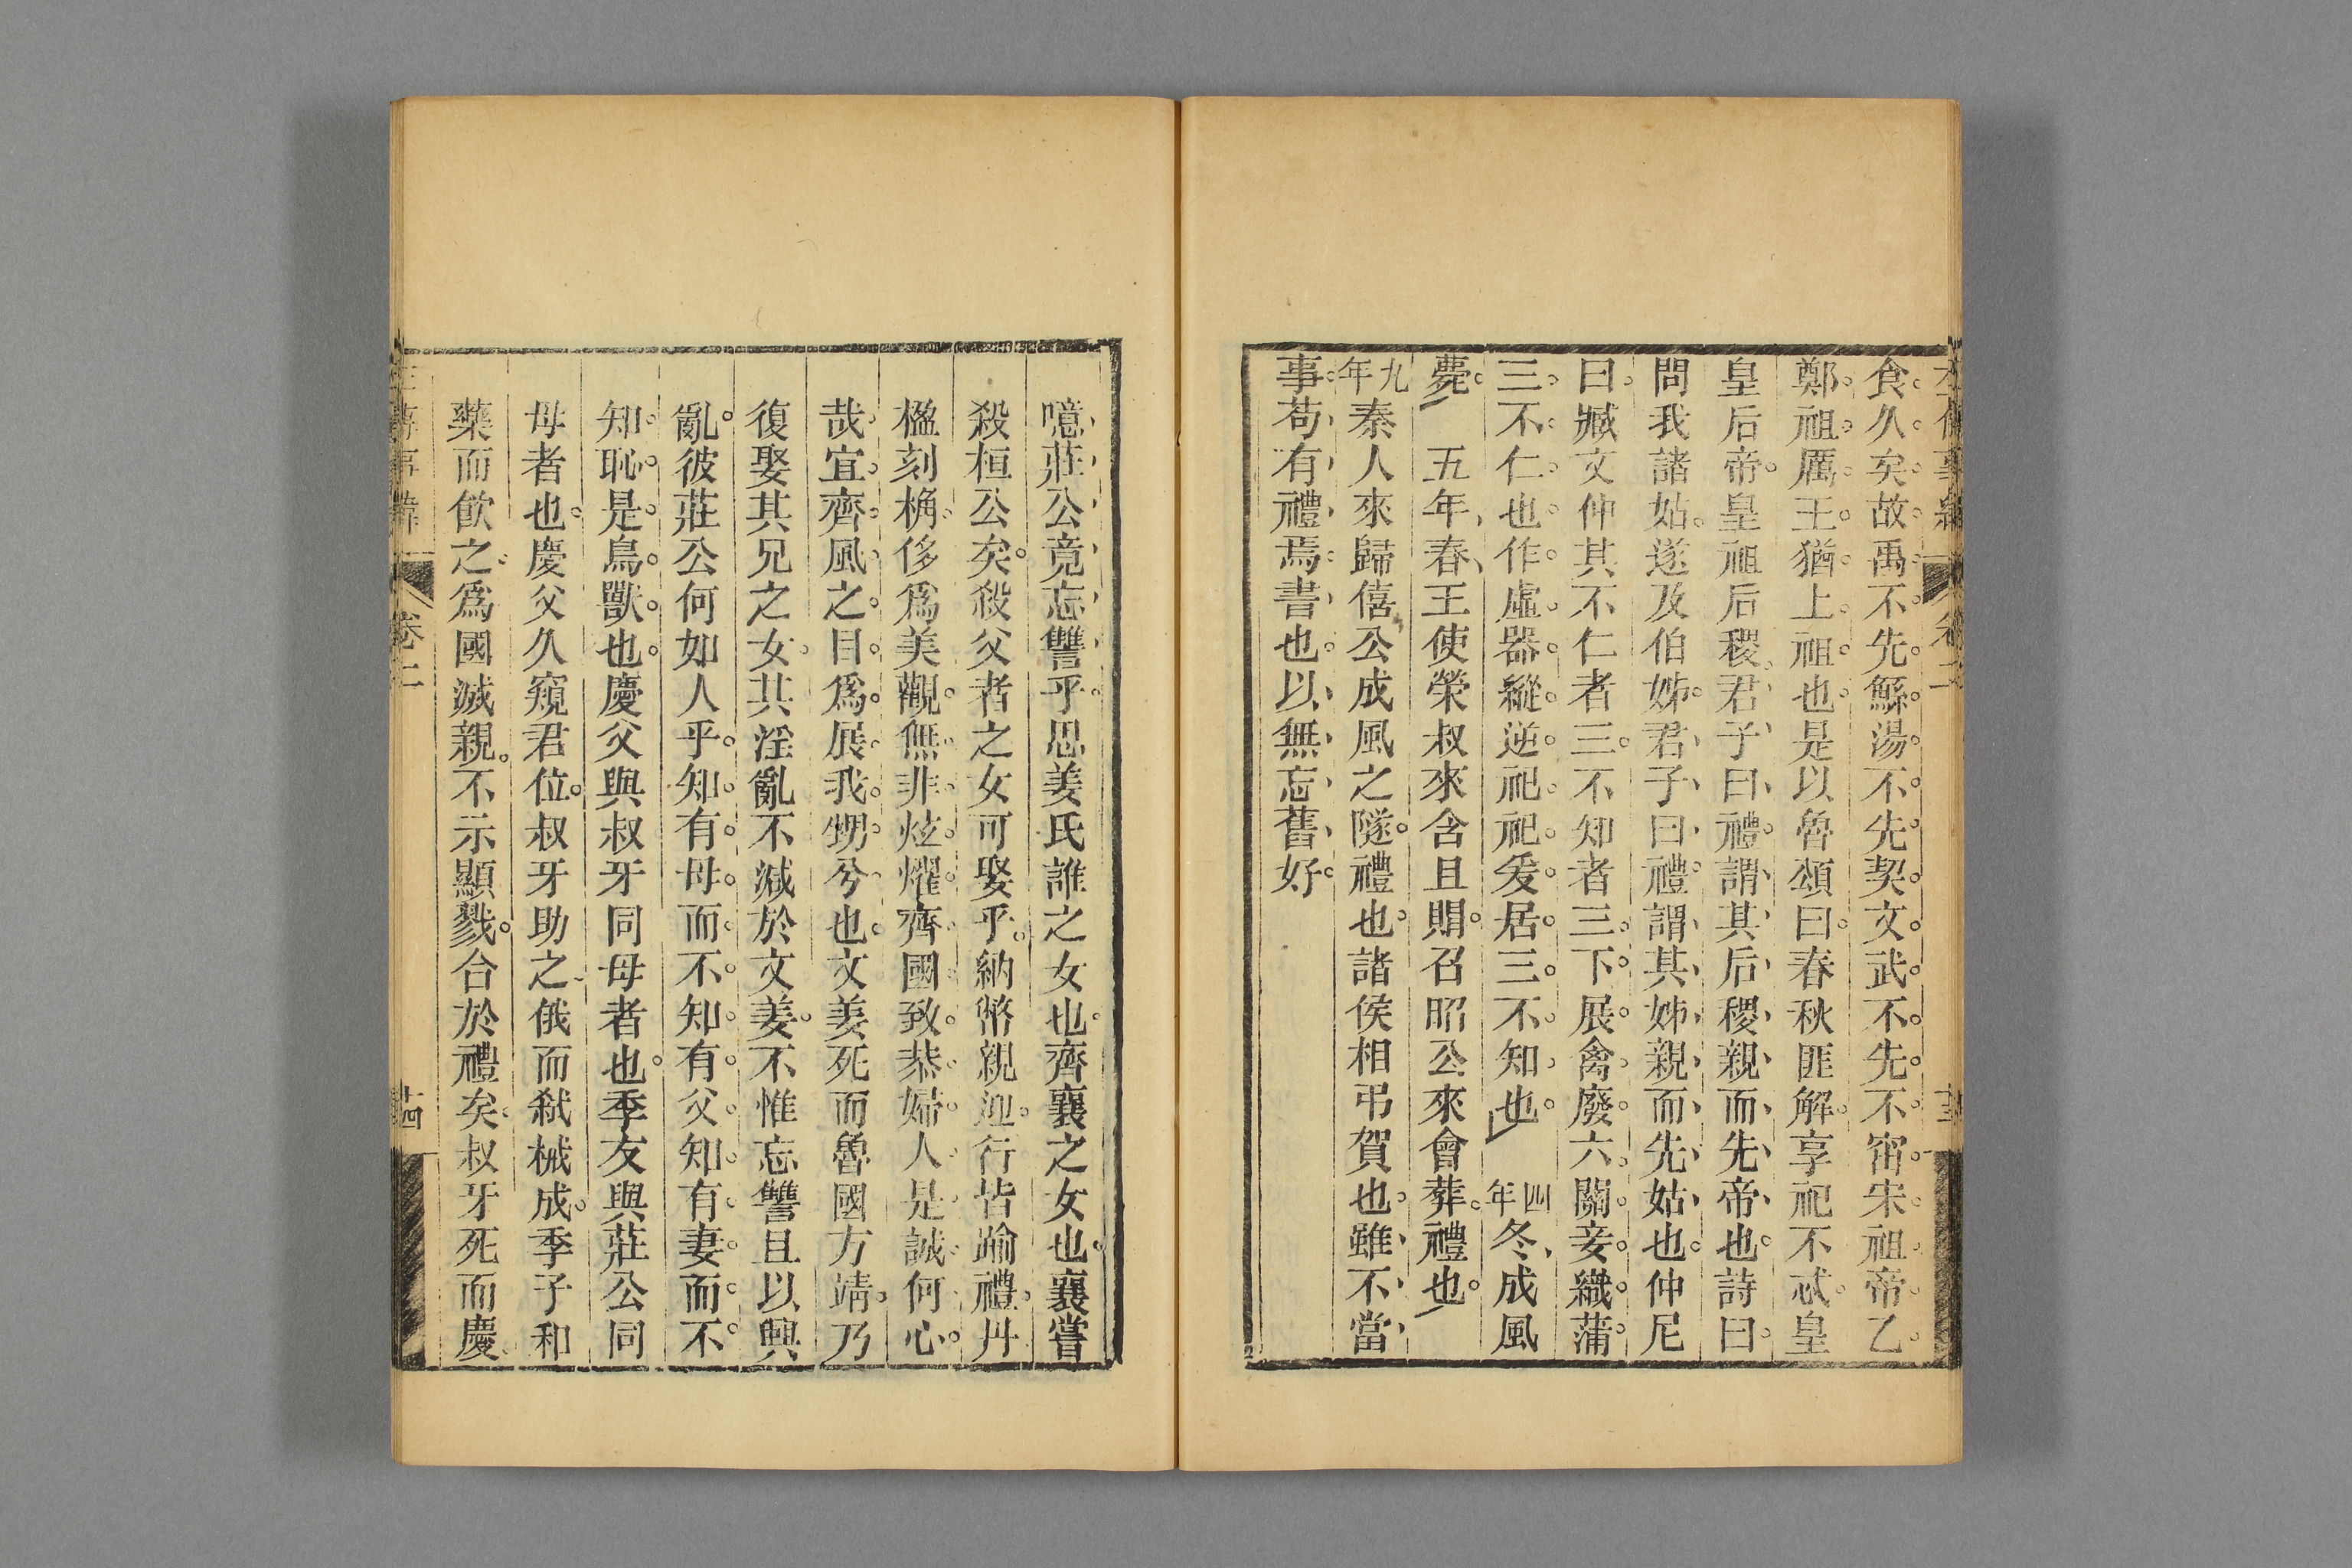 左傳事緯 卷二 十三
食久矣故禹不先鯀湯不先契文武不先不窋宋祖帝乙
鄭祖厲王猶上祖也是以魯頌曰春秋匪解享祀不忒皇
皇后帝皇祖后稷君子曰禮謂其后稷親而先帝也詩曰
問我諸姑遂及伯姊君子曰禮謂其姊親而先姑也仲尼
曰臧文仲其不仁者三不知者三下展禽廢六關妾織蒲
三不仁也作虛器縱逆祀祀爰居三不知也 四年冬成風
薨 五年春王使榮叔來含且賵召昭公來會葬禮也
九年秦人來歸僖公成風之隧禮也諸侯相弔賀也雖不當
事苟有禮焉書也以無忘舊好
噫莊公竟忘讐乎思姜氏誰之女也齊襄之女也襄嘗
殺桓公矣殺父者之女可娶乎納幣親迎行皆踰禮丹
楹刻桷侈爲美觀無非炫燿齊國致恭婦人是誠何心
哉宜齊風之目爲展我甥兮也文姜死而魯國方靖乃
復娶其兄之女其淫亂不減於文姜不惟忘讐且以興
亂彼莊公何如人乎知有母而不知有父知有妻而不
知恥是鳥獸也慶父與叔牙同母者也季友與莊公同
母者也慶父久窺君位叔牙助之俄而弒械成季子和
藥而飲之爲國滅親不示顯戮合於禮矣叔牙死而慶
左傳事緯 卷二 十四